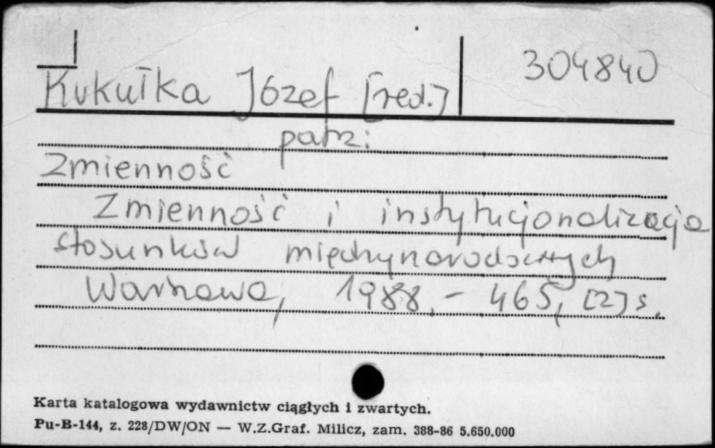 Kukułka Józef [red.] 304840
patrz:
Zmienność
Zmienność i instytucjonalizacja
stosunków międzynarodowych
Warszawa, 1988. - 465, [2] s.
Karta katalogowa wydawnictw ciągłych i zwartych.
Pu-B-144, z. 228/DW/ON — W.Z.Graf. Milicz, zam. 388-86 5.650.000